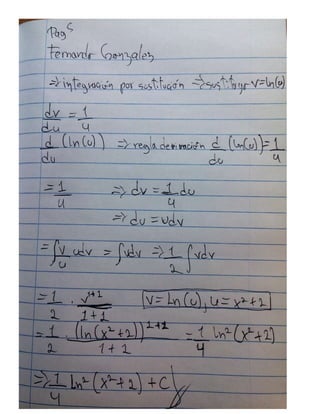 Pag 5
Fernando Gonzales
⇒ integración por sustitución ⇒ sustituye v=ln(u)
dv/du = 1/u
d/du (ln(u)) ⇒ regla derivación d/du (ln(u)) = 1/u
= 1/u ⇒ dv = 1/u du
⇒ du = udv
= ∫ v/u udv = ∫vdv ⇒ 1/2 ∫vdv
= 1/2 · v^(1+1)/(1+1) v = Ln(u), u = x²+2
= 1/2 (ln(x²+2))^(1+1)/(1+1) = 1/4 ln²(x²+2)
⇒ 1/4 Ln²(x²+2) + C